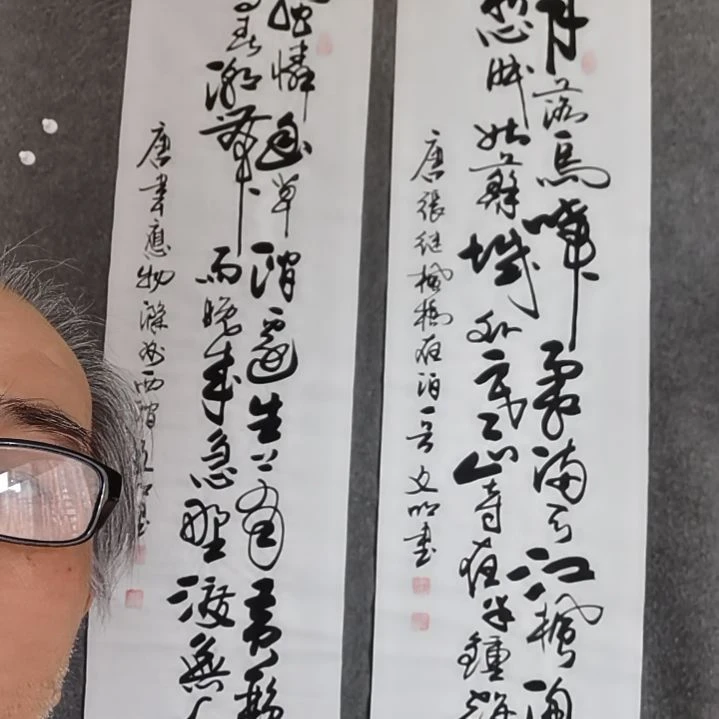 月落烏啼霜滿天江楓漁
愁眠姑蘇城外寒山寺夜半鐘聲
唐張继楓橋夜泊一首文明書
獨憐幽草澗邊生上有黃鸝
春潮帶雨晚来急野渡無人
唐韋應物滁州西澗